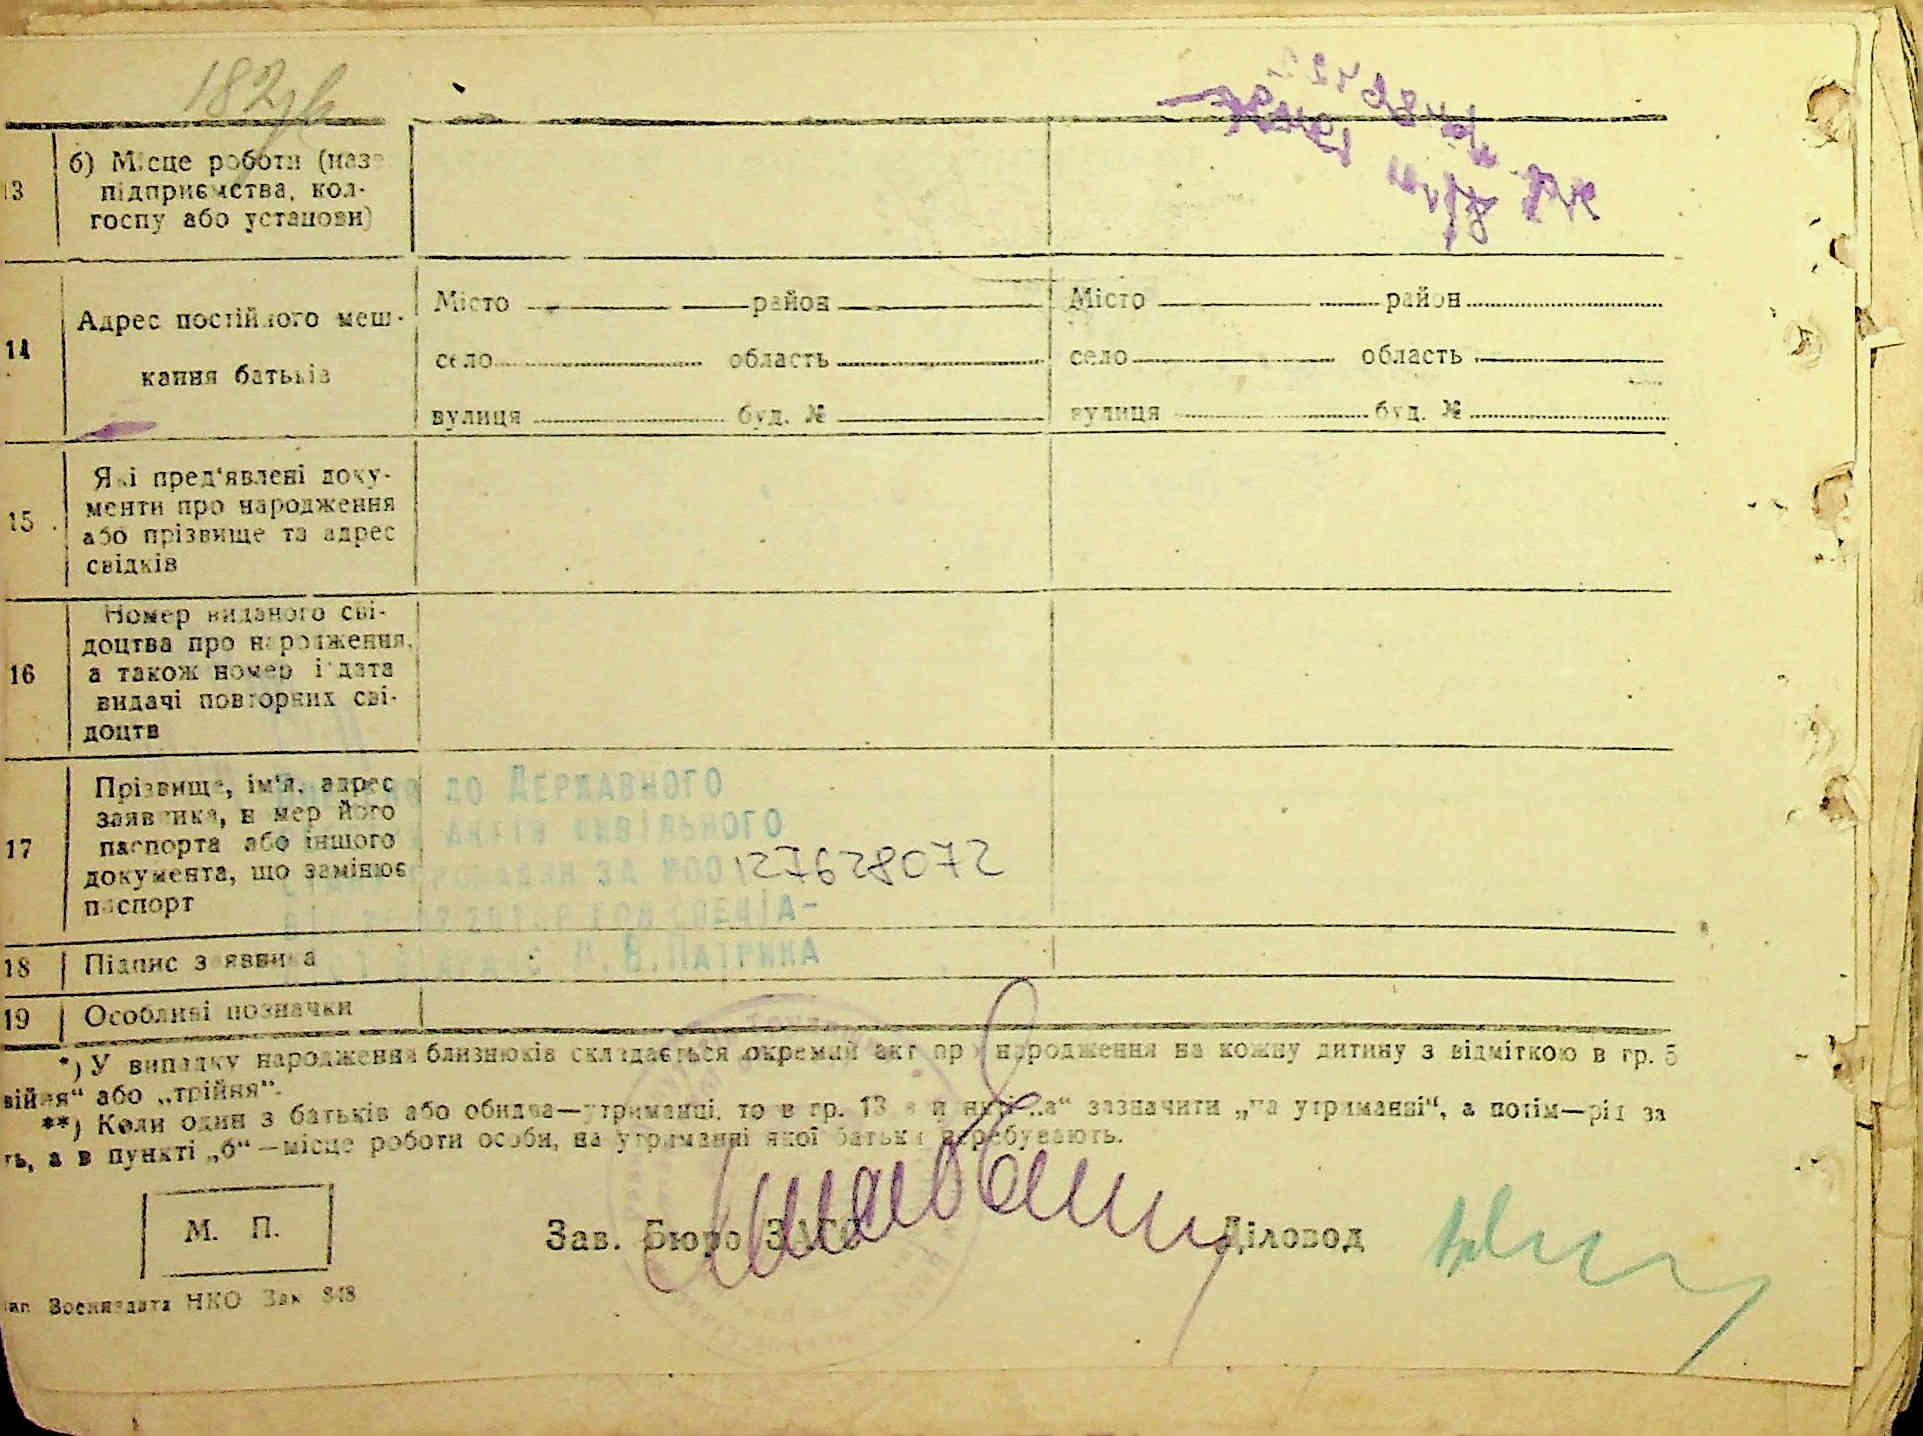 182
13
б) Місце роботи (назв
підприємства, кол-
госпу або установи)
14
Адрес постійного меш-
кання батьків
Місто район
село область
вулиця буд. №
Місто район
село область
вулиця буд. №
15
Які пред'явлені доку-
менти про народження
або прізвище та адрес
свідків
16
Номер виданого сві-
доцтва про народження,
а також номер і дата
видачі повторних сві-
доцтв
17
Прізвище, ім'я, адрес
заявника, номер його
паспорта або іншого
документа, що замінює
паспорт
до Державного
актів цивільного
громадян за №00127628072
спеціа-
В. Патрика
18 Підпис заявника
19 Особливі позначки
*) У випадку народження близнюків складається окремий акт про народження на кожну дитину з відміткою в гр. 5
війня“ або „трійня“.
**) Коли один з батьків або обидва—утриманці, то в гр. 13 в пункті „а“ зазначити „на утриманні“, а потім—рід за
ть, а в пункті „б“—місце роботи особи, на утриманні якої батьки перебувають.
М. П.
Зав. Бюро ЗАГС Діловод
Воениздата НКО Зак 848